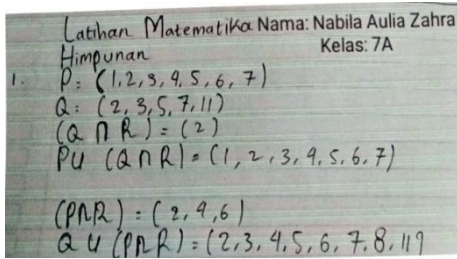 Latihan Matematika Nama: Nabila Aulia Zahra
Himpunan Kelas: 7A
1. P = (1,2,3,4,5,6,7)
Q = (2,3,5,7,11)
(Q ∩ R) = (2)
PU (Q ∩ R) = (1,2,3,4,5,6,7)
(P∩R) = (2,4,6)
Q U (P∩R) = (2,3,4,5,6,7,8,11)